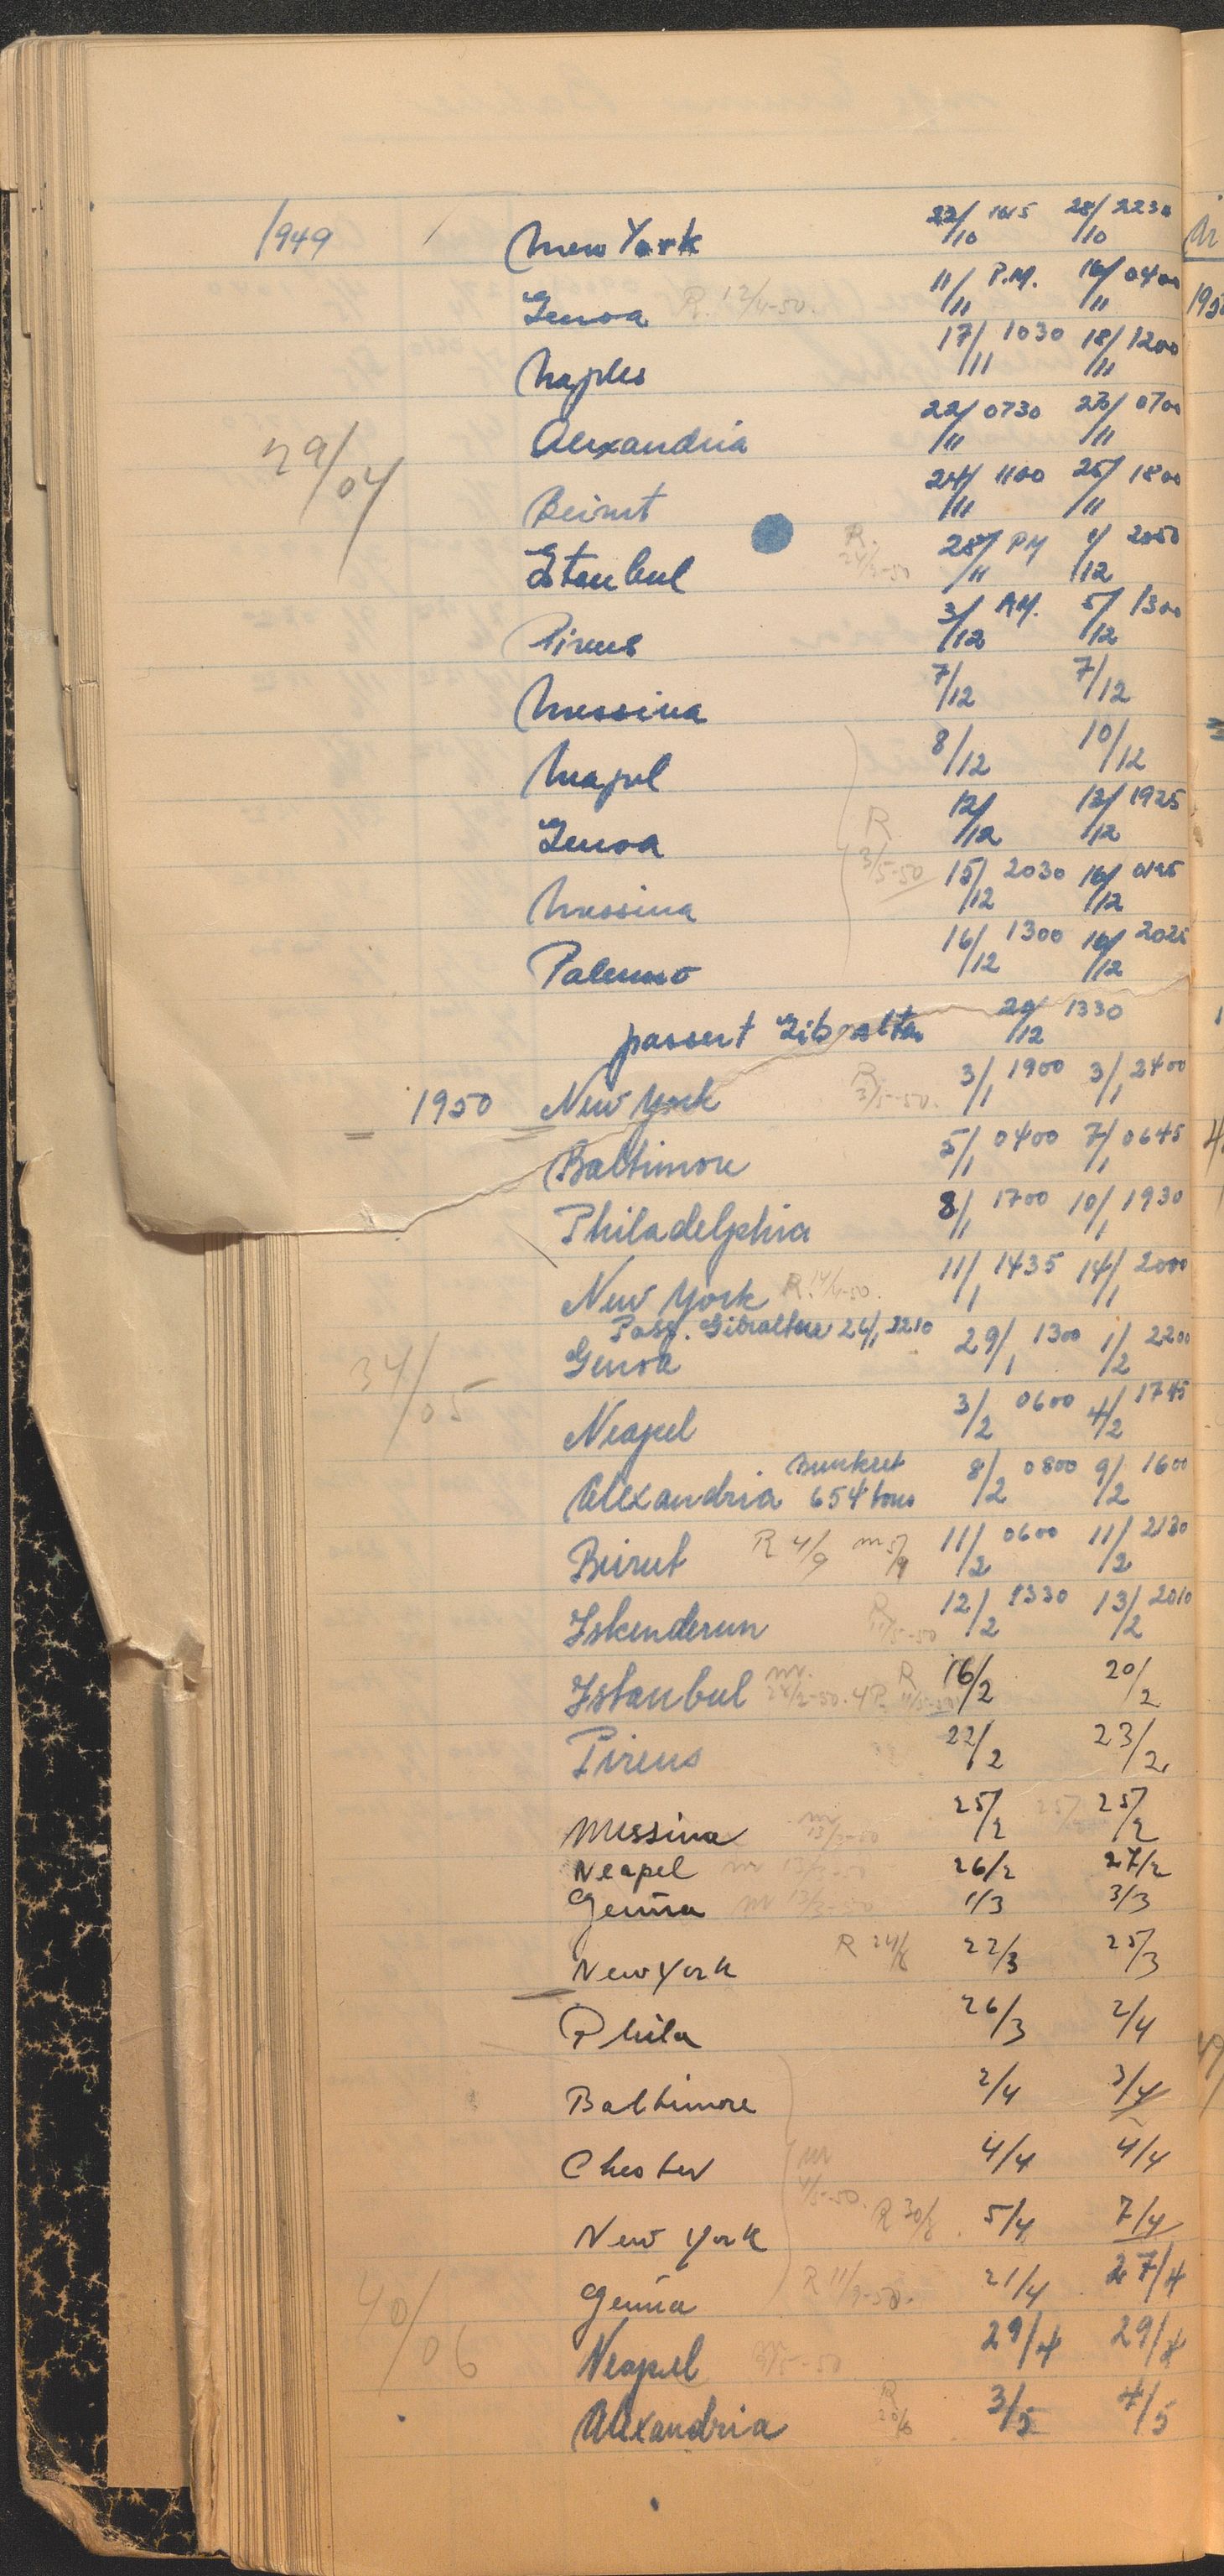 1949 New York 22/10 1615 28/10 2230
Genoa R. 12/4-50. 11/11 P.M. 16/11 0400
Naples 17/11 1030 18/11 1200
29/04
Alexandria 22/11 0730 23/11 0700
Beirut 24/11 1100 25/11 1800
Istanbul R. 28/11 PM 1/12 2050
Pireus 3/12 AM. 5/12 1300
Messina 7/12 7/12
Neapel 8/12 10/12
Genoa R 3/5-50 12/12 13/12 1925
Messina 15/12 2030 16/12
Palermo 16/12 1300 16/12
passert Gibraltar 20/12 1330
1950 New York R 3/5-50. 3/1 1900 3/1 2400
Baltimore 5/1 0400 7/1 0645
Philadelphia 8/1 1700 10/1 1930
New York R. 14/4-50. 11/1 1435 14/1 2000
Pass. Gibraltar 26/1 2210
Genoa 29/1 1300 1/2 2200
34/05
Neapel 3/2 0600 4/2 1745
Alexandria bunkret 654 tons 8/2 0800 9/2 1600
Beirut R 4/9 11/2 0600 11/2 2130
Iskenderun R 12/2 1330 13/2 2010
Istanbul R 16/2 20/2
Pireus 22/2 23/2
Messina 25/2 25/2
Neapel 26/2 27/2
Genua 1/3 3/3
New York R 24/8 22/3 25/3
Phila 26/3 2/4
Baltimore 2/4 3/4
Chester 4/4 4/4
New York R 30/8 5/4 7/4
Genua R 11/9-50. 21/4 27/4
40/06
Neapel 29/4 29/4
Alexandria R 3/5 4/5